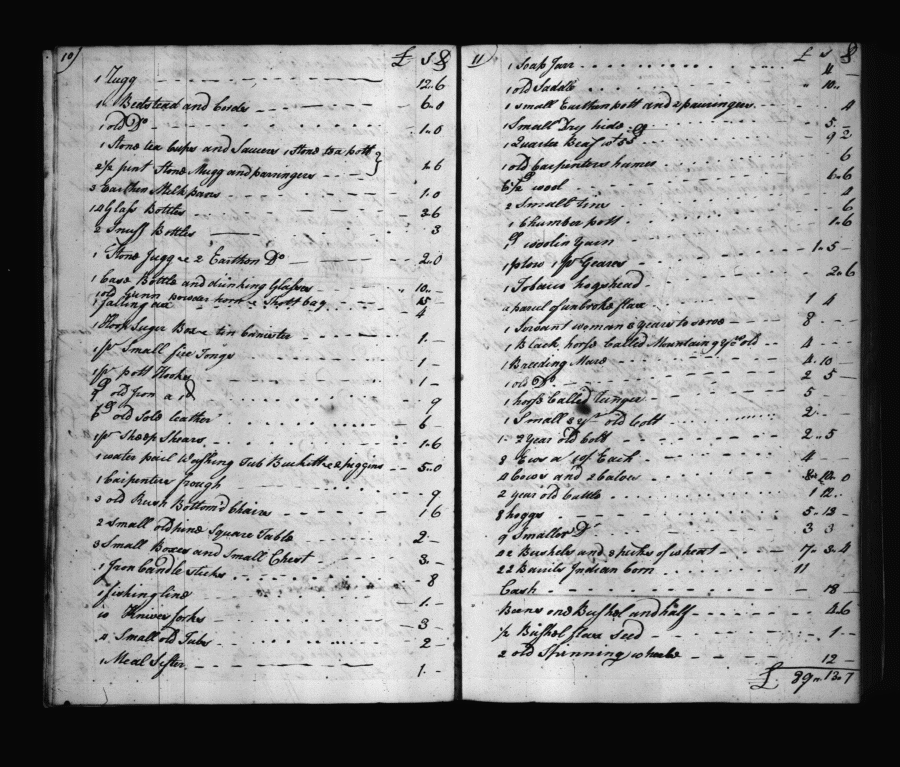 10)
£ s d
1 Rugg - 12..6
1 Bedstead and Cords - 6..0
1 old Do - 1..0
1 Stone tea Cupes and Saucers 1 Stone tea pott
2 1/2 pint Stone Mugg and parringers } 1..6
3 Earthen Milk pans - 1..0
14 Glass Bottles - 3..6
2 Snuff Bottles - 3
1 Stone Jugg & 2 Earthen Do - 2..0
1 Case Bottle and drinking Glasses - 10..
1 old Gunn powder horn & Shott bag - 15
1 falling ax - 4
1 Hoop Suger Box & tin Canister - 1..
1 pr Small fire Tongs - 1
1 pr pott Hooks - 1
9 lb old Iron a 1d - 9
6 lb old Sole leather - 6
1 pr Sheep Shears - 1..6
1 water pail Washing Tub Buckett & 2 piggins - 5..0
1 Carpinters
3 old Rush Bottom'd Chairs - 1 6
2 Small old pine Square Table - 2
3 Small Boxes and Small Chest - 3..
1 Iron Candle sticks - 8
1 fishing line - 1..
10 Knives forks - 3
4 Small old Tubs - 2
1 Meal Sifter - 1..
11)
£ s d
1 Soap Jarr - 4
1 old Saddle - 10..
1 small Earthen pott and 2 parringers - 4
1 Small Dry hide - 5
1 Quarter Beaf wt 55 lb - 9 2
1 old Carpenters hamer - 6
6 1/2 lb wool - 6..6
2 Small - 4
1 Chamber pott - 6
1 lb woolin Yarn - 1..6
1 plow 1 pr Geares - 1..5
1 Tobacco hogshead - 2..6
a parcel of unbroke flax - 1 4
1 Servant woman 2 years to serve - 8
1 Black horse Called Mountain 9 yrs old - 4
1 Breeding Mare - 4..10
1 old Do - 2 5
1 horse Called - 5
1 Small 3 yr old Colt - 2..
1 2 year old Colt - 2..5
8 Ews a - Each - 4
4 Cows and 2 Calves - 8..10..0
2 year old Cattle - 1 12..
8 hoggs - 5..13
9 Smaller Do - 3 3
22 Bushels and 3 pecks of wheat - 7..3..4
22 Barrils Indian Corn - 11
Cash - 18
Beens one Bushel and half - 4..6
1/2 Bushel flax Seed - 1
2 old Spinning wheels - 12
£ 89..13..7